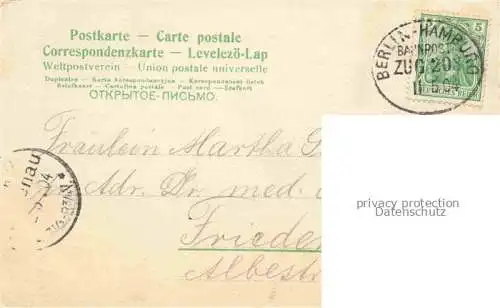 Postkarte – Carte postale
Correspondenzkarte – Levelező-Lap
Weltpostverein – Union postale universelle
Dopisnice – Karta korespondencyjna – Korespondenční lístek
Brefkort – Cartolina postale – Post card – Briefkaart
ОТКРЫТОЕ-ПИСЬМО.
BERLIN-HAMBURG
BAHNPOST
ZUG 203
5
Fräulein Martha G
Adr. Dr. med
Frieden
Albestr
nau
privacy protection
Datenschutz